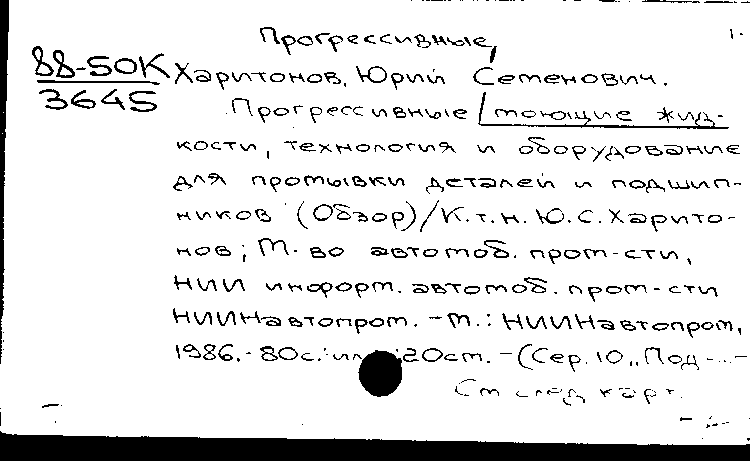 Прогрессивные
1.
88-50К
3645
Харитонов, Юрий Семенович.
Прогрессивные моющие жид-
кости, технология и оборудование
для промывки деталей и подшип-
ников (Обзор)/К.т.н. Ю.С. Харито-
нов; М-во автомоб. пром-сти,
НИИ информ. автомоб. пром-сти
НИИНавтопром. - М.: НИИНавтопром,
1986. - 80с.: ил.; 20см. - (Сер. 10, Под
См след карт.